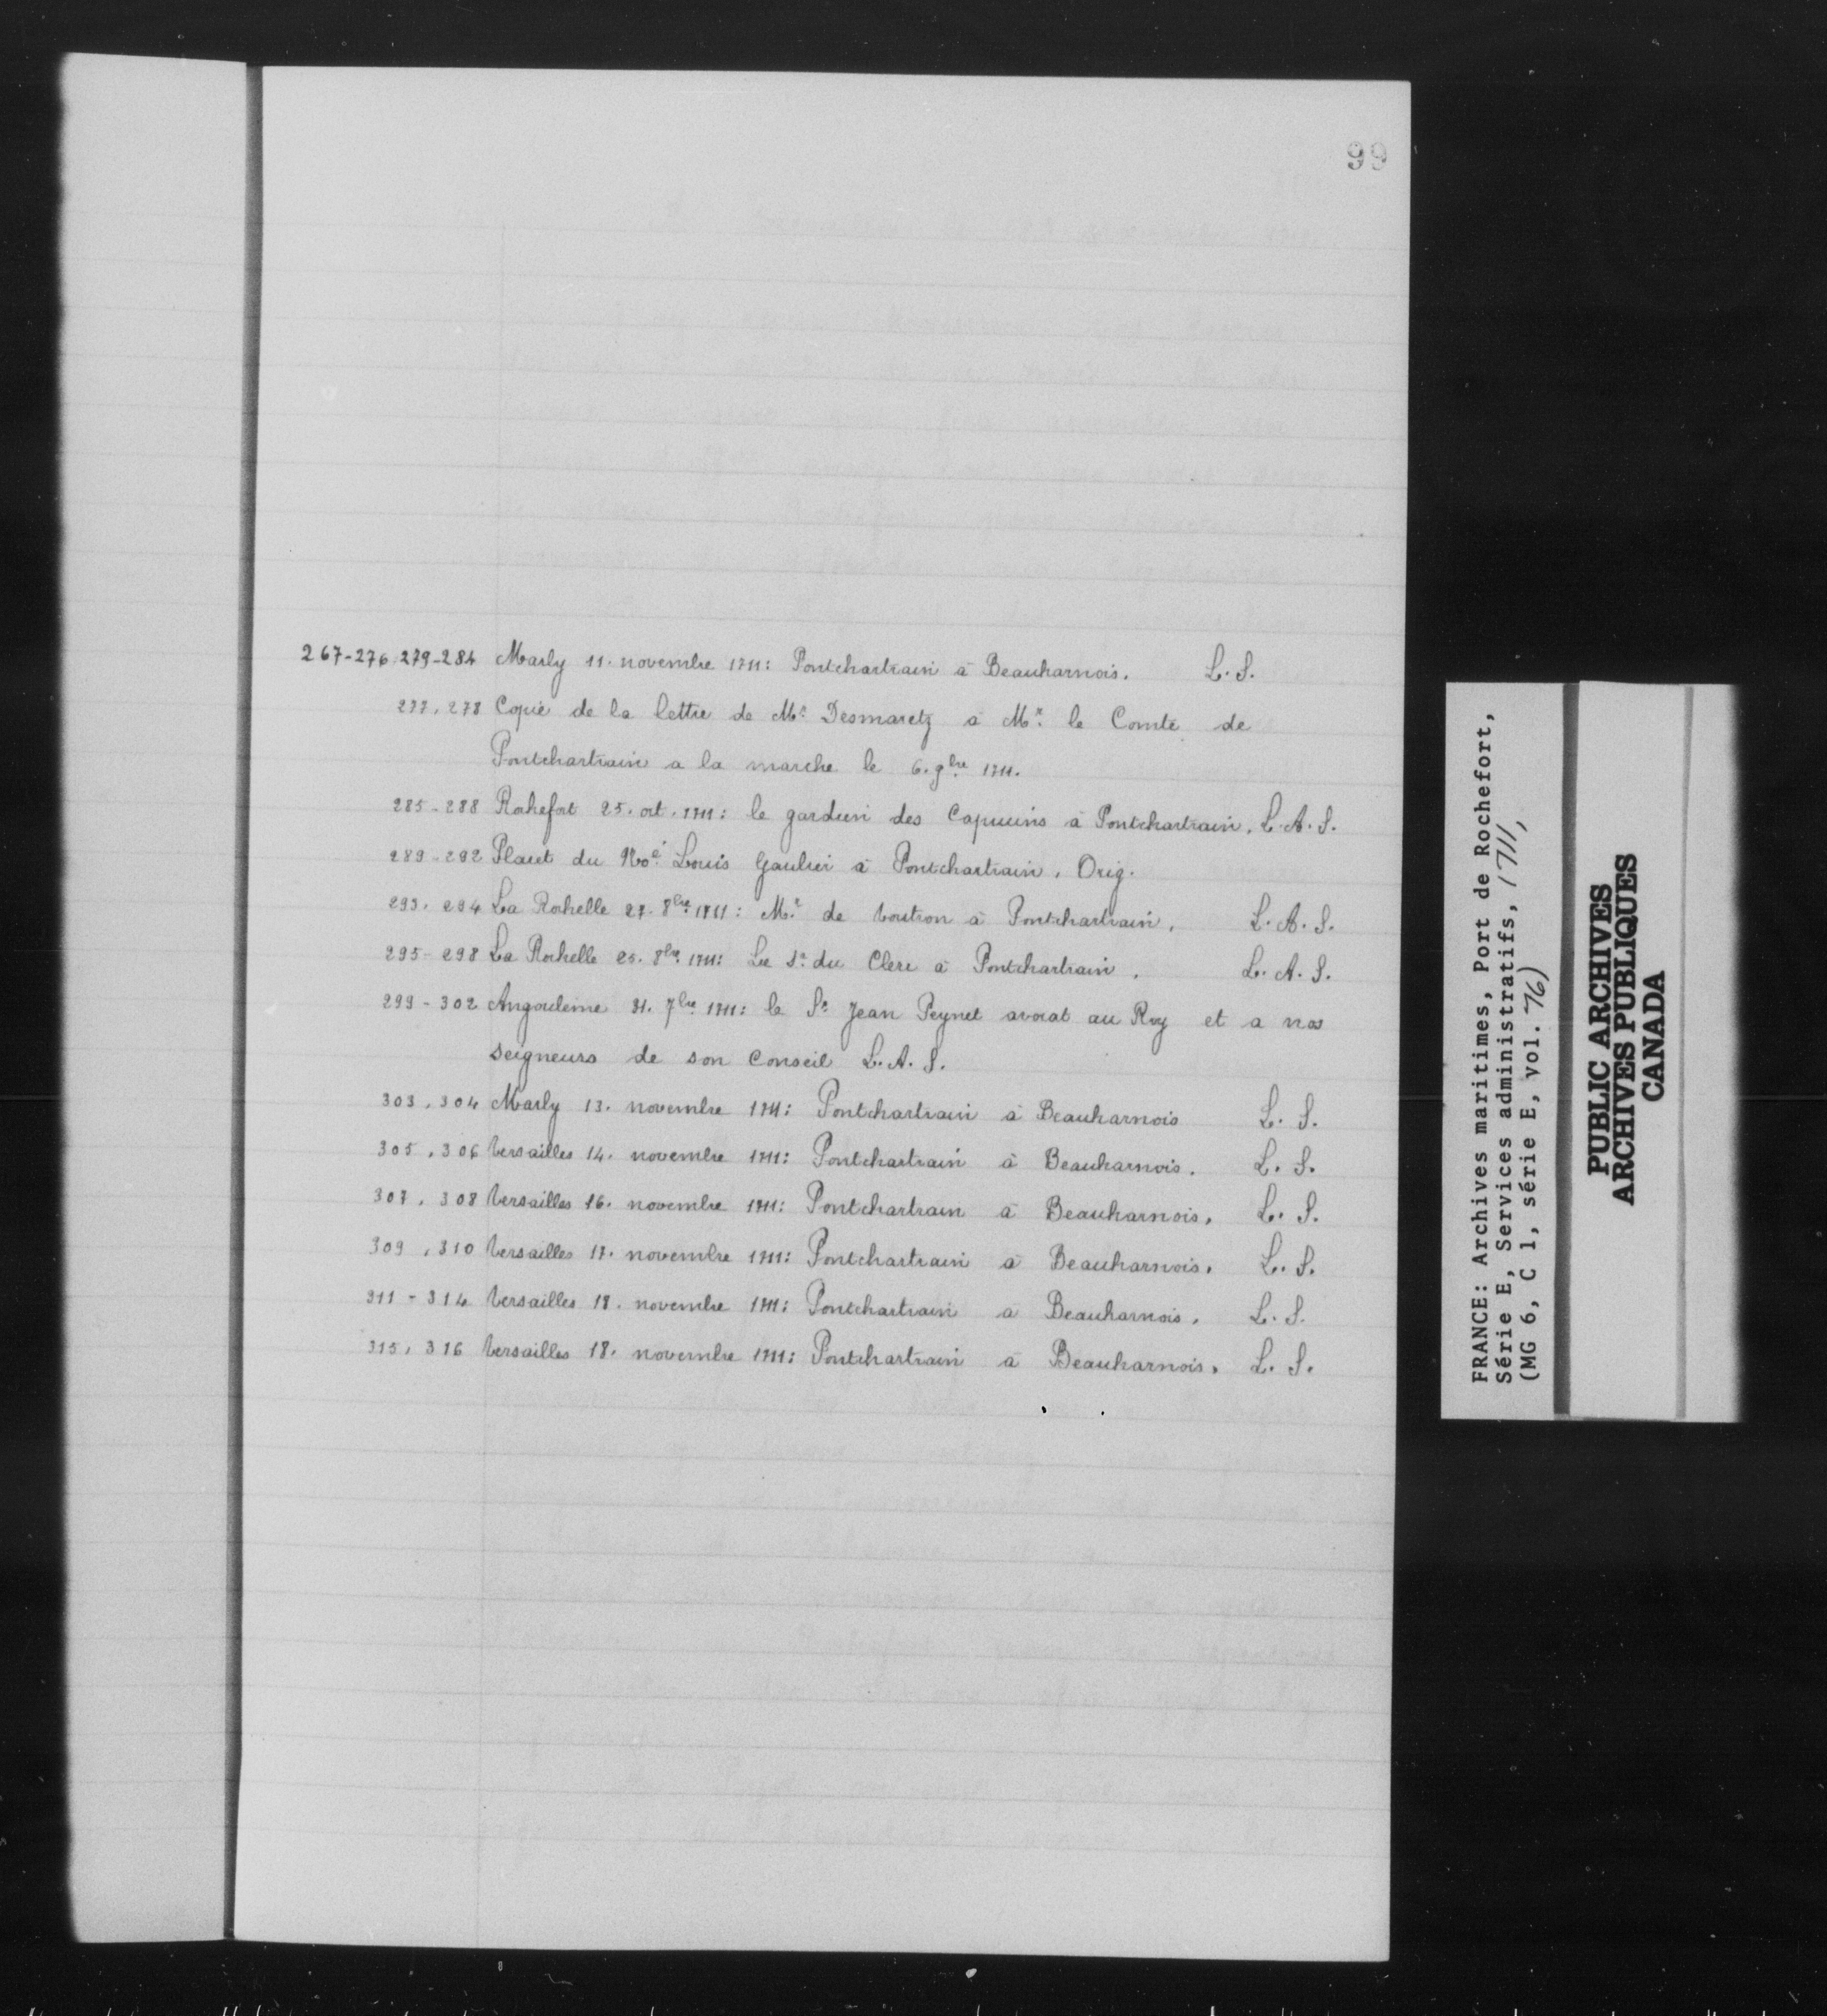 99
267-276, 279-284 Marly 11. novembre 1711: Pontchartrain à Beauharnois. L. S.
277, 278 Copie de la lettre de Mr. Desmaretz à Mr. le Comte de
Pontchartrain a la marche le 6. 9bre 1711.
285-288 Rochefort 25. oct. 1711: le gardien des Capucins à Pontchartrain. L. A. S.
289-292 Placet du Louis Gaulier à Pontchartrain. Orig.
293, 294 La Rochelle 27. 8bre 1711: Mr. de Voutron à Pontchartrain. L. A. S.
295-298 La Rochelle 25. 8bre 1711: Le Sr. du Clerc à Pontchartrain. L. A. S.
299-302 Angouleme 31. 7bre 1711: le Sr. Jean Peynet avocat au Roy et a nos
seigneurs de son Conseil L. A. S.
303, 304 Marly 13. novembre 1711: Pontchartrain à Beauharnois L. S.
305, 306 Versailles 14. novembre 1711: Pontchartrain à Beauharnois. L. S.
307, 308 Versailles 16. novembre 1711: Pontchartrain à Beauharnois. L. S.
309, 310 Versailles 17. novembre 1711: Pontchartrain à Beauharnois. L. S.
311-314 Versailles 18. novembre 1711: Pontchartrain à Beauharnois. L. S.
315, 316 Versailles 18. novembre 1711: Pontchartrain à Beauharnois. L. S.
FRANCE: Archives maritimes, Port de Rochefort,
Série E, Services administratifs, 1711,
(MG 6, C 1, série E, vol. 76)
PUBLIC ARCHIVES
ARCHIVES PUBLIQUES
CANADA